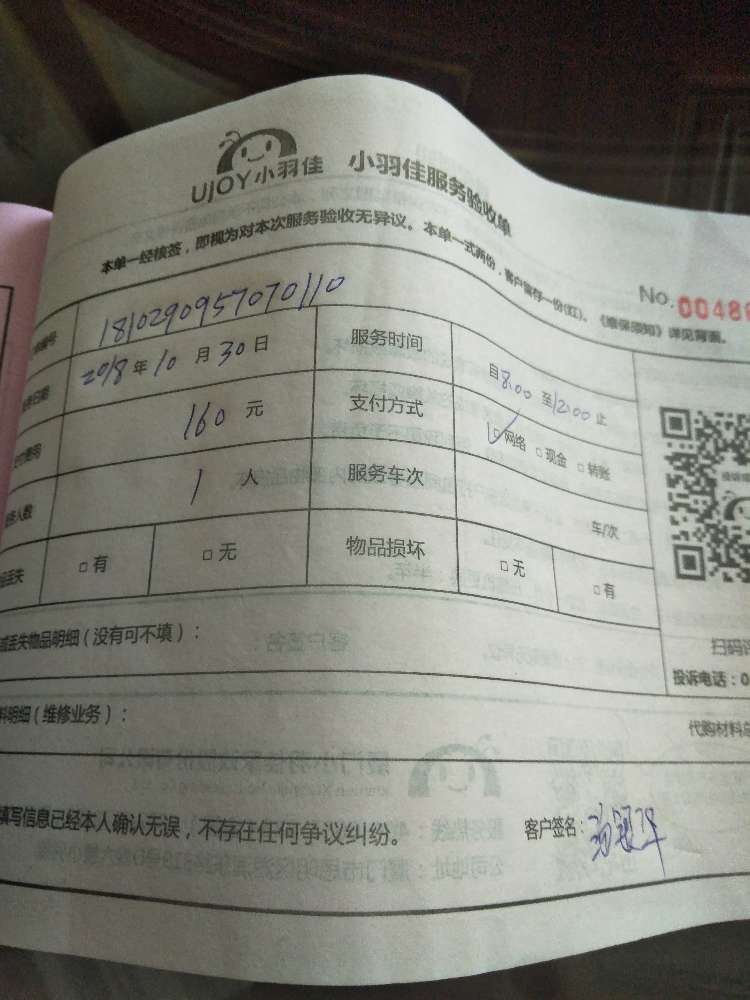 UJOY小羽佳 小羽佳服务验收单
本单一经核签，即视为对本次服务验收无异议。本单一式两份，客户留存一份(红)。《维保须知》详见背面。
No. 00486
编号 1810290957070110
日期 2018年10月30日 服务时间 自8:00 至12:00止
费用 160元 支付方式 ☑网络 □现金 □转账
人数 1人 服务车次 车/次
丢失 □有 □无 物品损坏 □无 □有
或丢失物品明细（没有可不填）：
扫码
投诉电话：0
料明细（维修业务）：
代购材料总
填写信息已经本人确认无误，不存在任何争议纠纷。
客户签名：